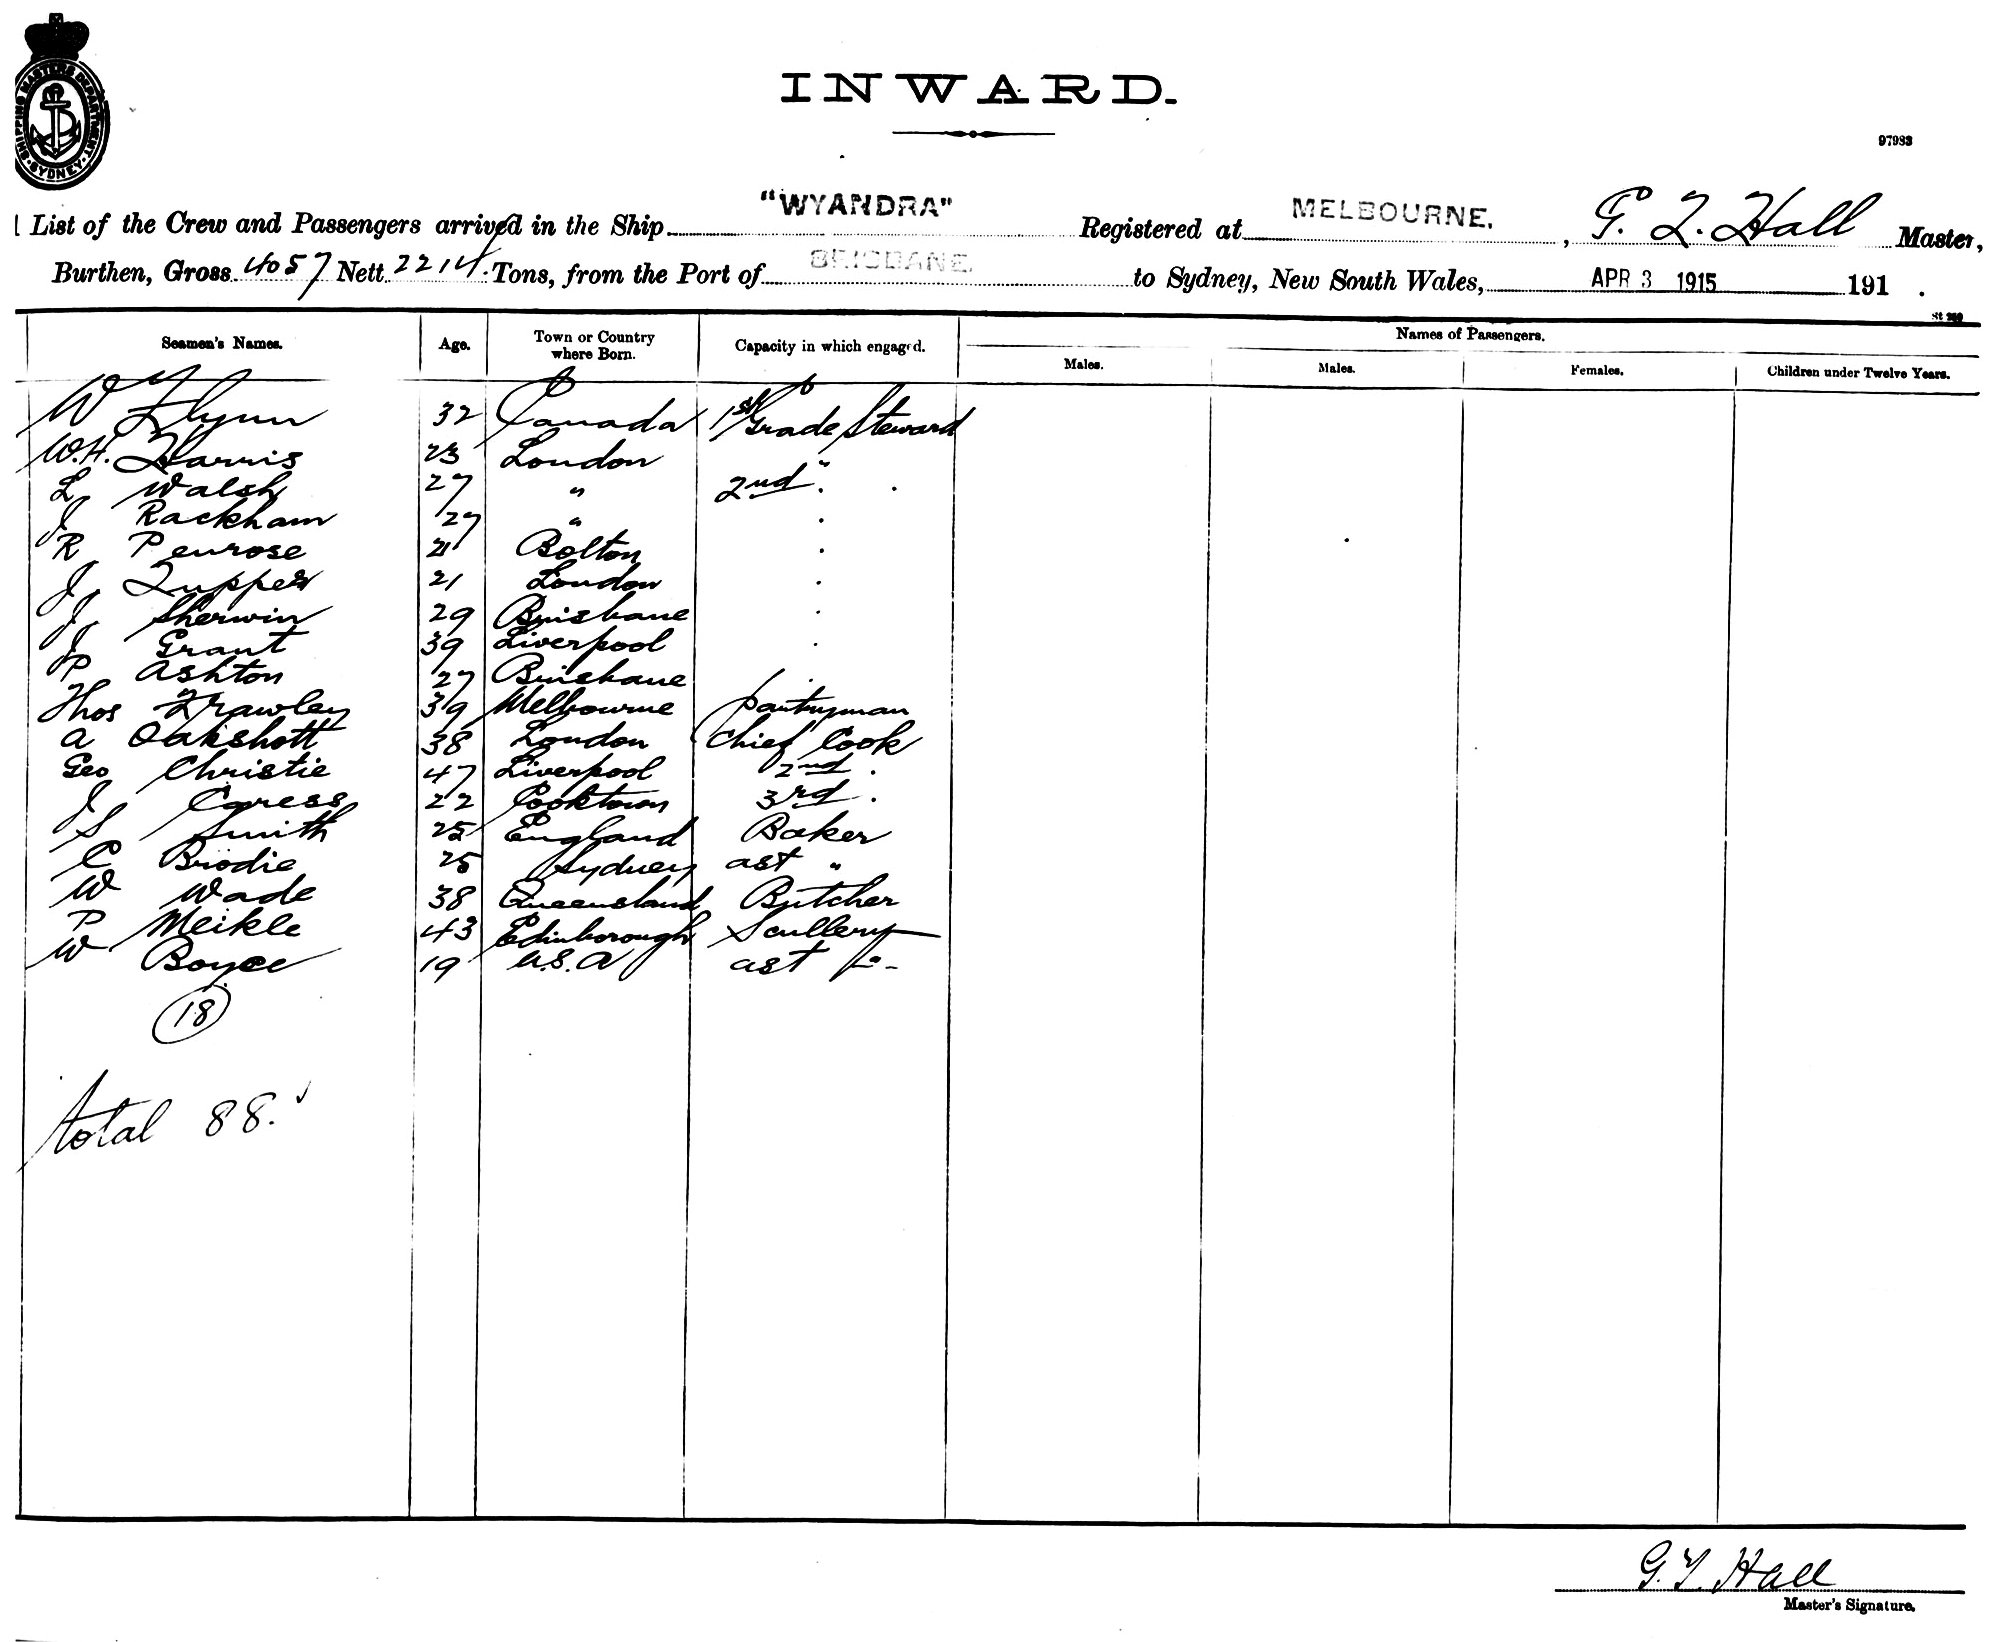 SHIPPING MASTERS DEPARTMENT. SYDNEY
INWARD.
97983
List of the Crew and Passengers arrived in the Ship "WYANDRA" Registered at MELBOURNE, G. T. Hall Master,
Burthen, Gross 4057 Nett 2214 Tons, from the Port of BRISBANE to Sydney, New South Wales, APR 3 1915 191 .
Seamen's Names. Age. Town or Country where Born. Capacity in which engaged. Names of Passengers.
Males. Males. Females. Children under Twelve Years.
W Flynn 32 Canada 1st Grade Steward
W.H. Harris 23 London "
L Walsh 27 " 2nd "
J Rackham 27 "
R Penrose 21 Bolton
J Tupper 21 London
J Sherwin 29 Brisbane
J Grant 39 Liverpool
P Ashton 27 Brisbane
Thos Frawley 39 Melbourne Pantryman
A Oakshott 38 London Chief Cook
Geo Christie 47 Liverpool 2nd .
J Caress 22 Cooktown 3rd .
S Smith 25 England Baker
C Brodie 25 Sydney ast "
W Wade 38 Queensland Butcher
P Meikle 43 Edinborough Scullery
W Boyce 19 U.S.A ast -"-
18
total 88.
G. T. Hall
Master's Signature.